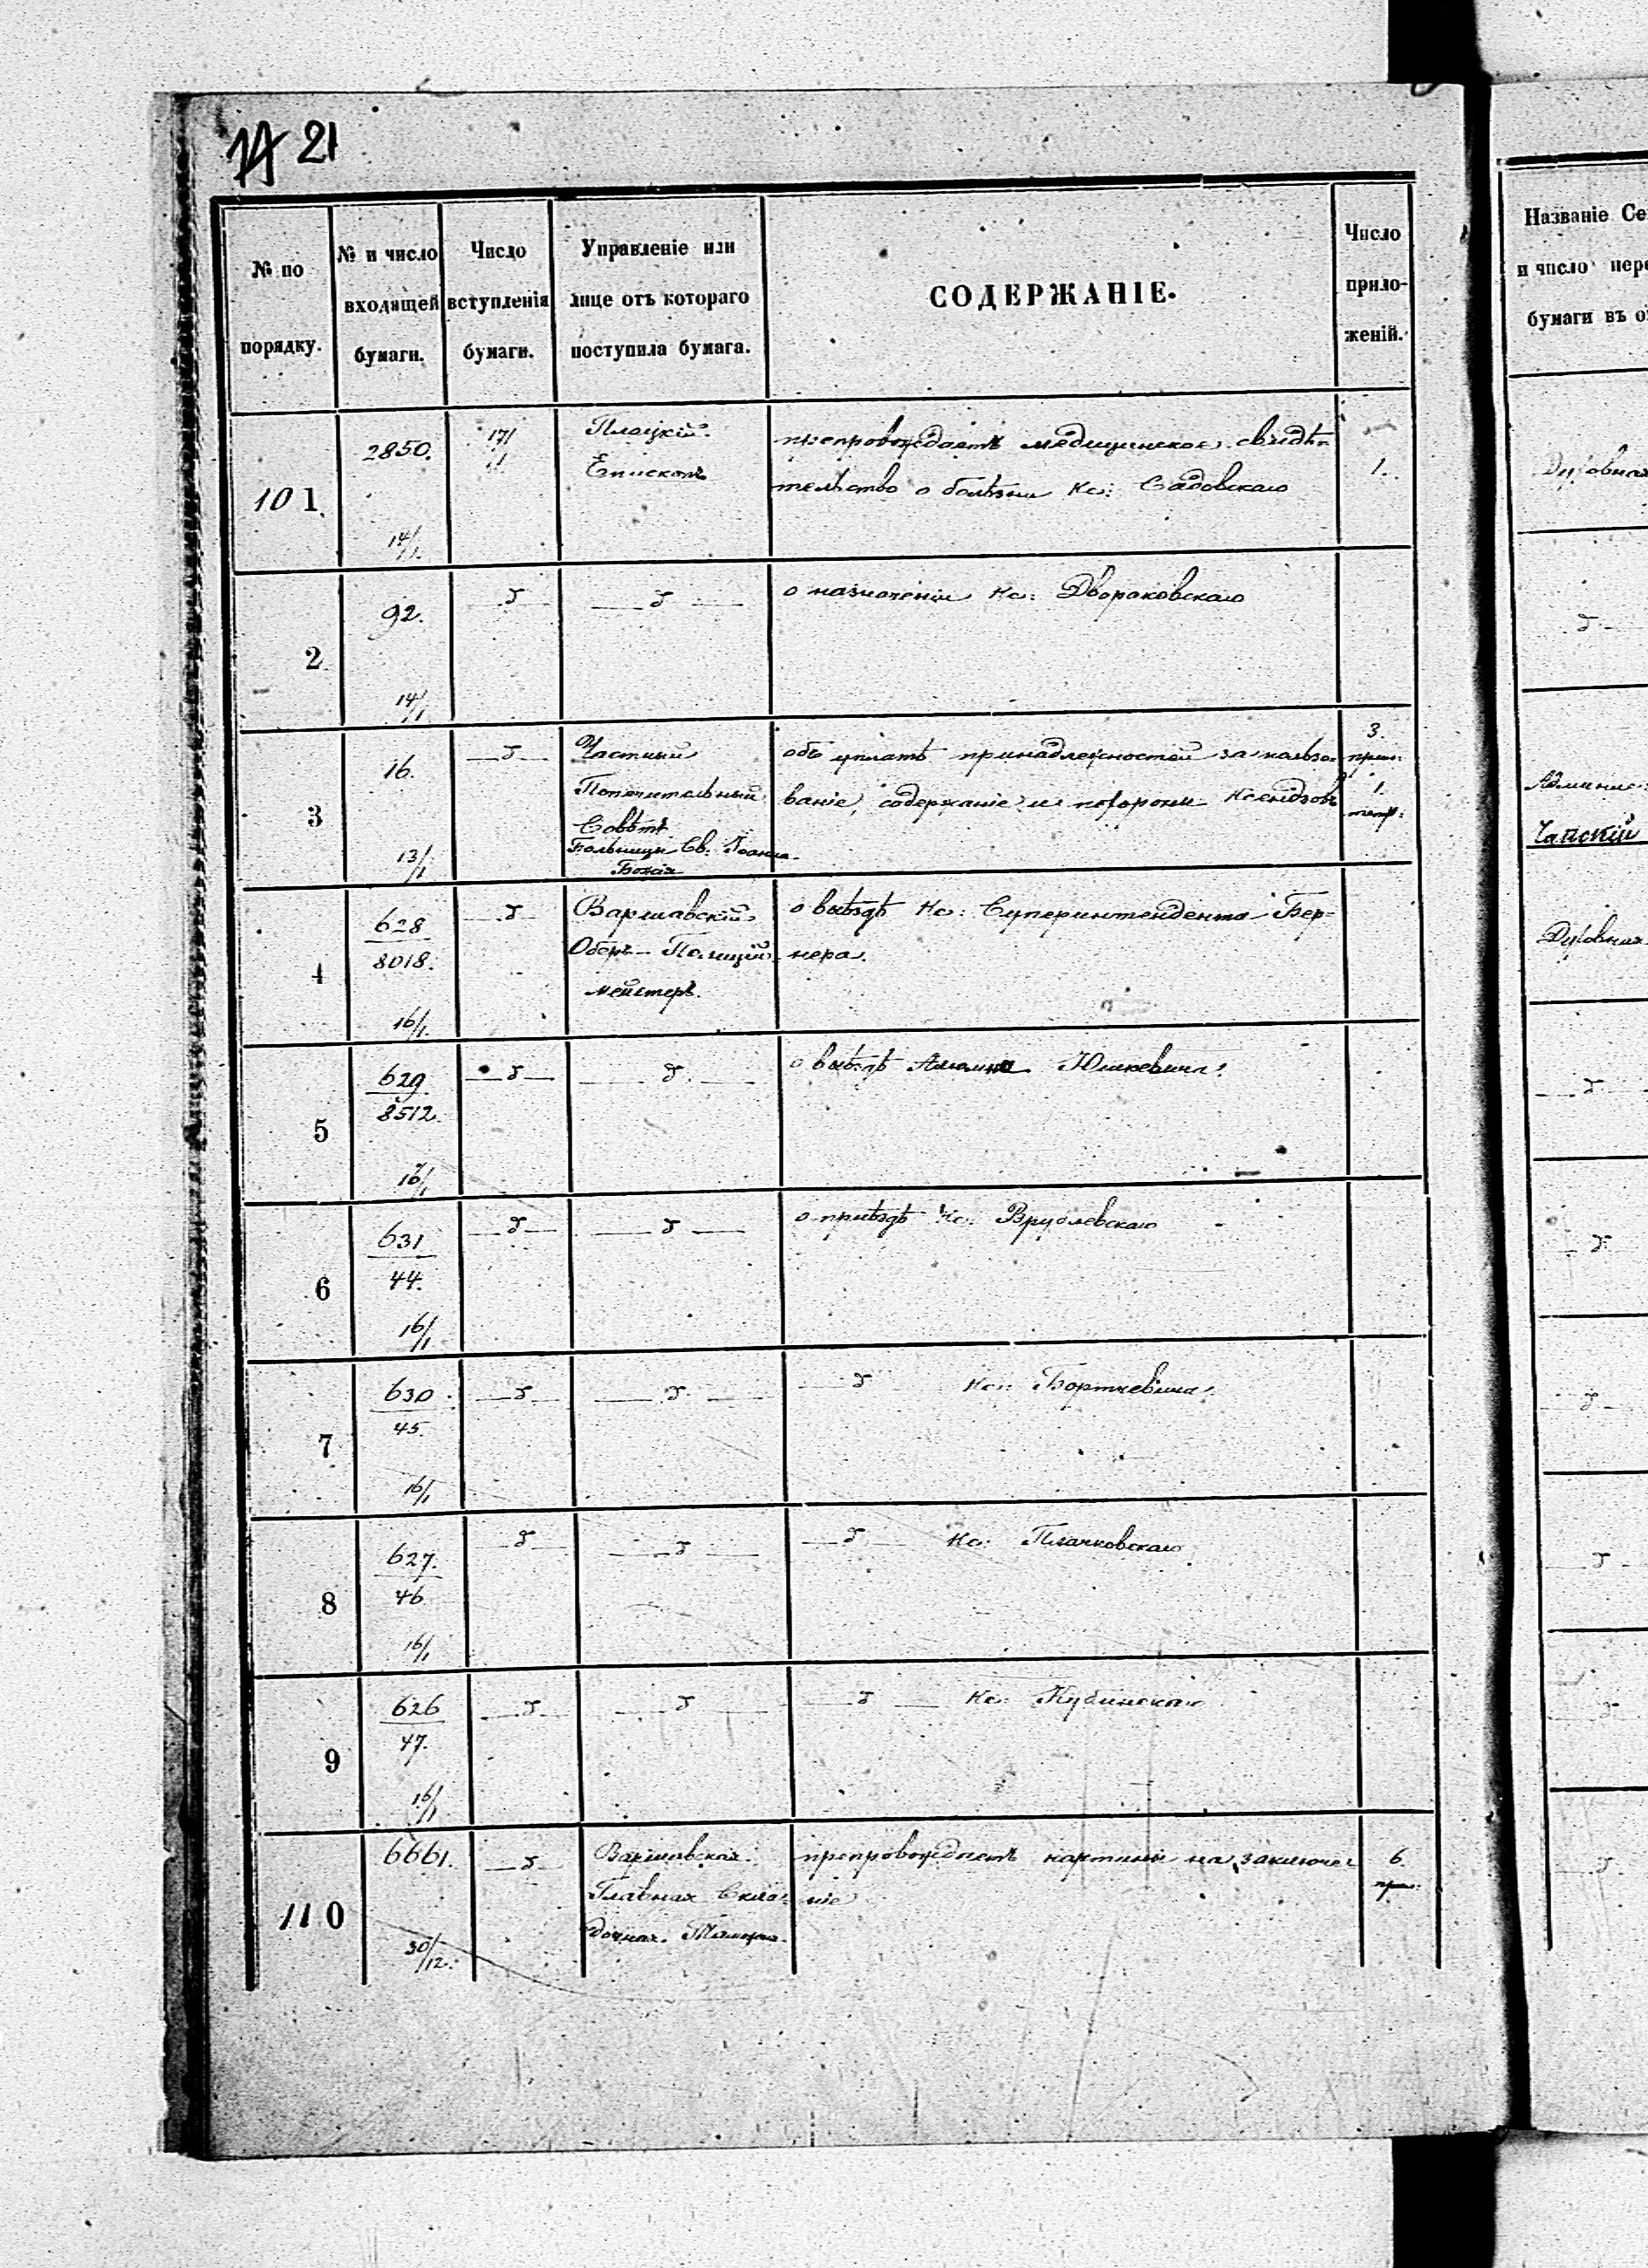 21
№ по порядку.
№ и число входящей бумаги.
Число вступленія бумаги.
Управленіе или лице отъ котораго поступила бумага.
СОДЕРЖАНІЕ.
Число приложеній.
101
2850.
14/1.
17/1
Плоцкій
Епископъ
препровождаетъ медицинское свидѣ-
тельство о болѣзни Кс: Садовскаго
1.
2
92.
14/1
о назначеніи Кс: Двораковскаго
3
16.
13/1
Частный
Попечительный
Совѣтъ
Больницы Св. Іоанна
Божія
объ уплатѣ принадлежностей за пользо-
ваніе, содержаніе и похороны Ксендзовъ
3.
1.
4
628
8018.
16/1.
Варшавскій
Оберъ-Полицій-
мейстеръ.
о выѣздѣ Кс: Суперинтендента Бер-
нера.
5
629
8512.
16/1
о выѣздѣ Юшкевича
6
631
44.
16/1
о пріѣздѣ Кс: Врублевскаго
7
630
45.
16/1
Кс: Борткевича
8
627.
46
16/1
Кс:
9
626
47.
16/1
Кс:
110
6661.
30/12.
Варшавская
Главная Скла-
дочная Таможня.
препровождаетъ картины на заключе-
ніе
6.
Названіе Се
и число пере
бумаги въ о
Духовная
Чапскій
Духовная